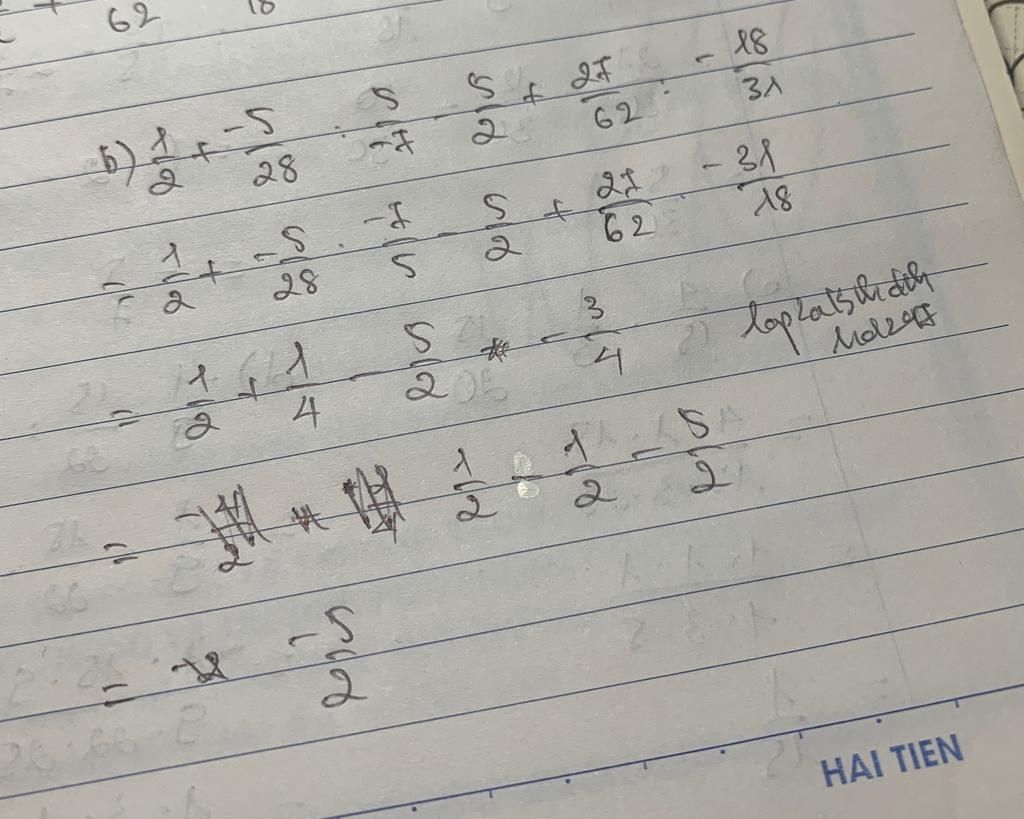 62 18
b) 1/2 + -5/28 : 5/-7 - 5/2 + 27/62 : -18/31
= 1/2 + -5/28 . -7/5 - 5/2 + 27/62 . -31/18
= 1/2 + 1/4 - 5/2 - 3/4
= 1/2 - 1/2 - 5/2
= -5/2
HAI TIEN